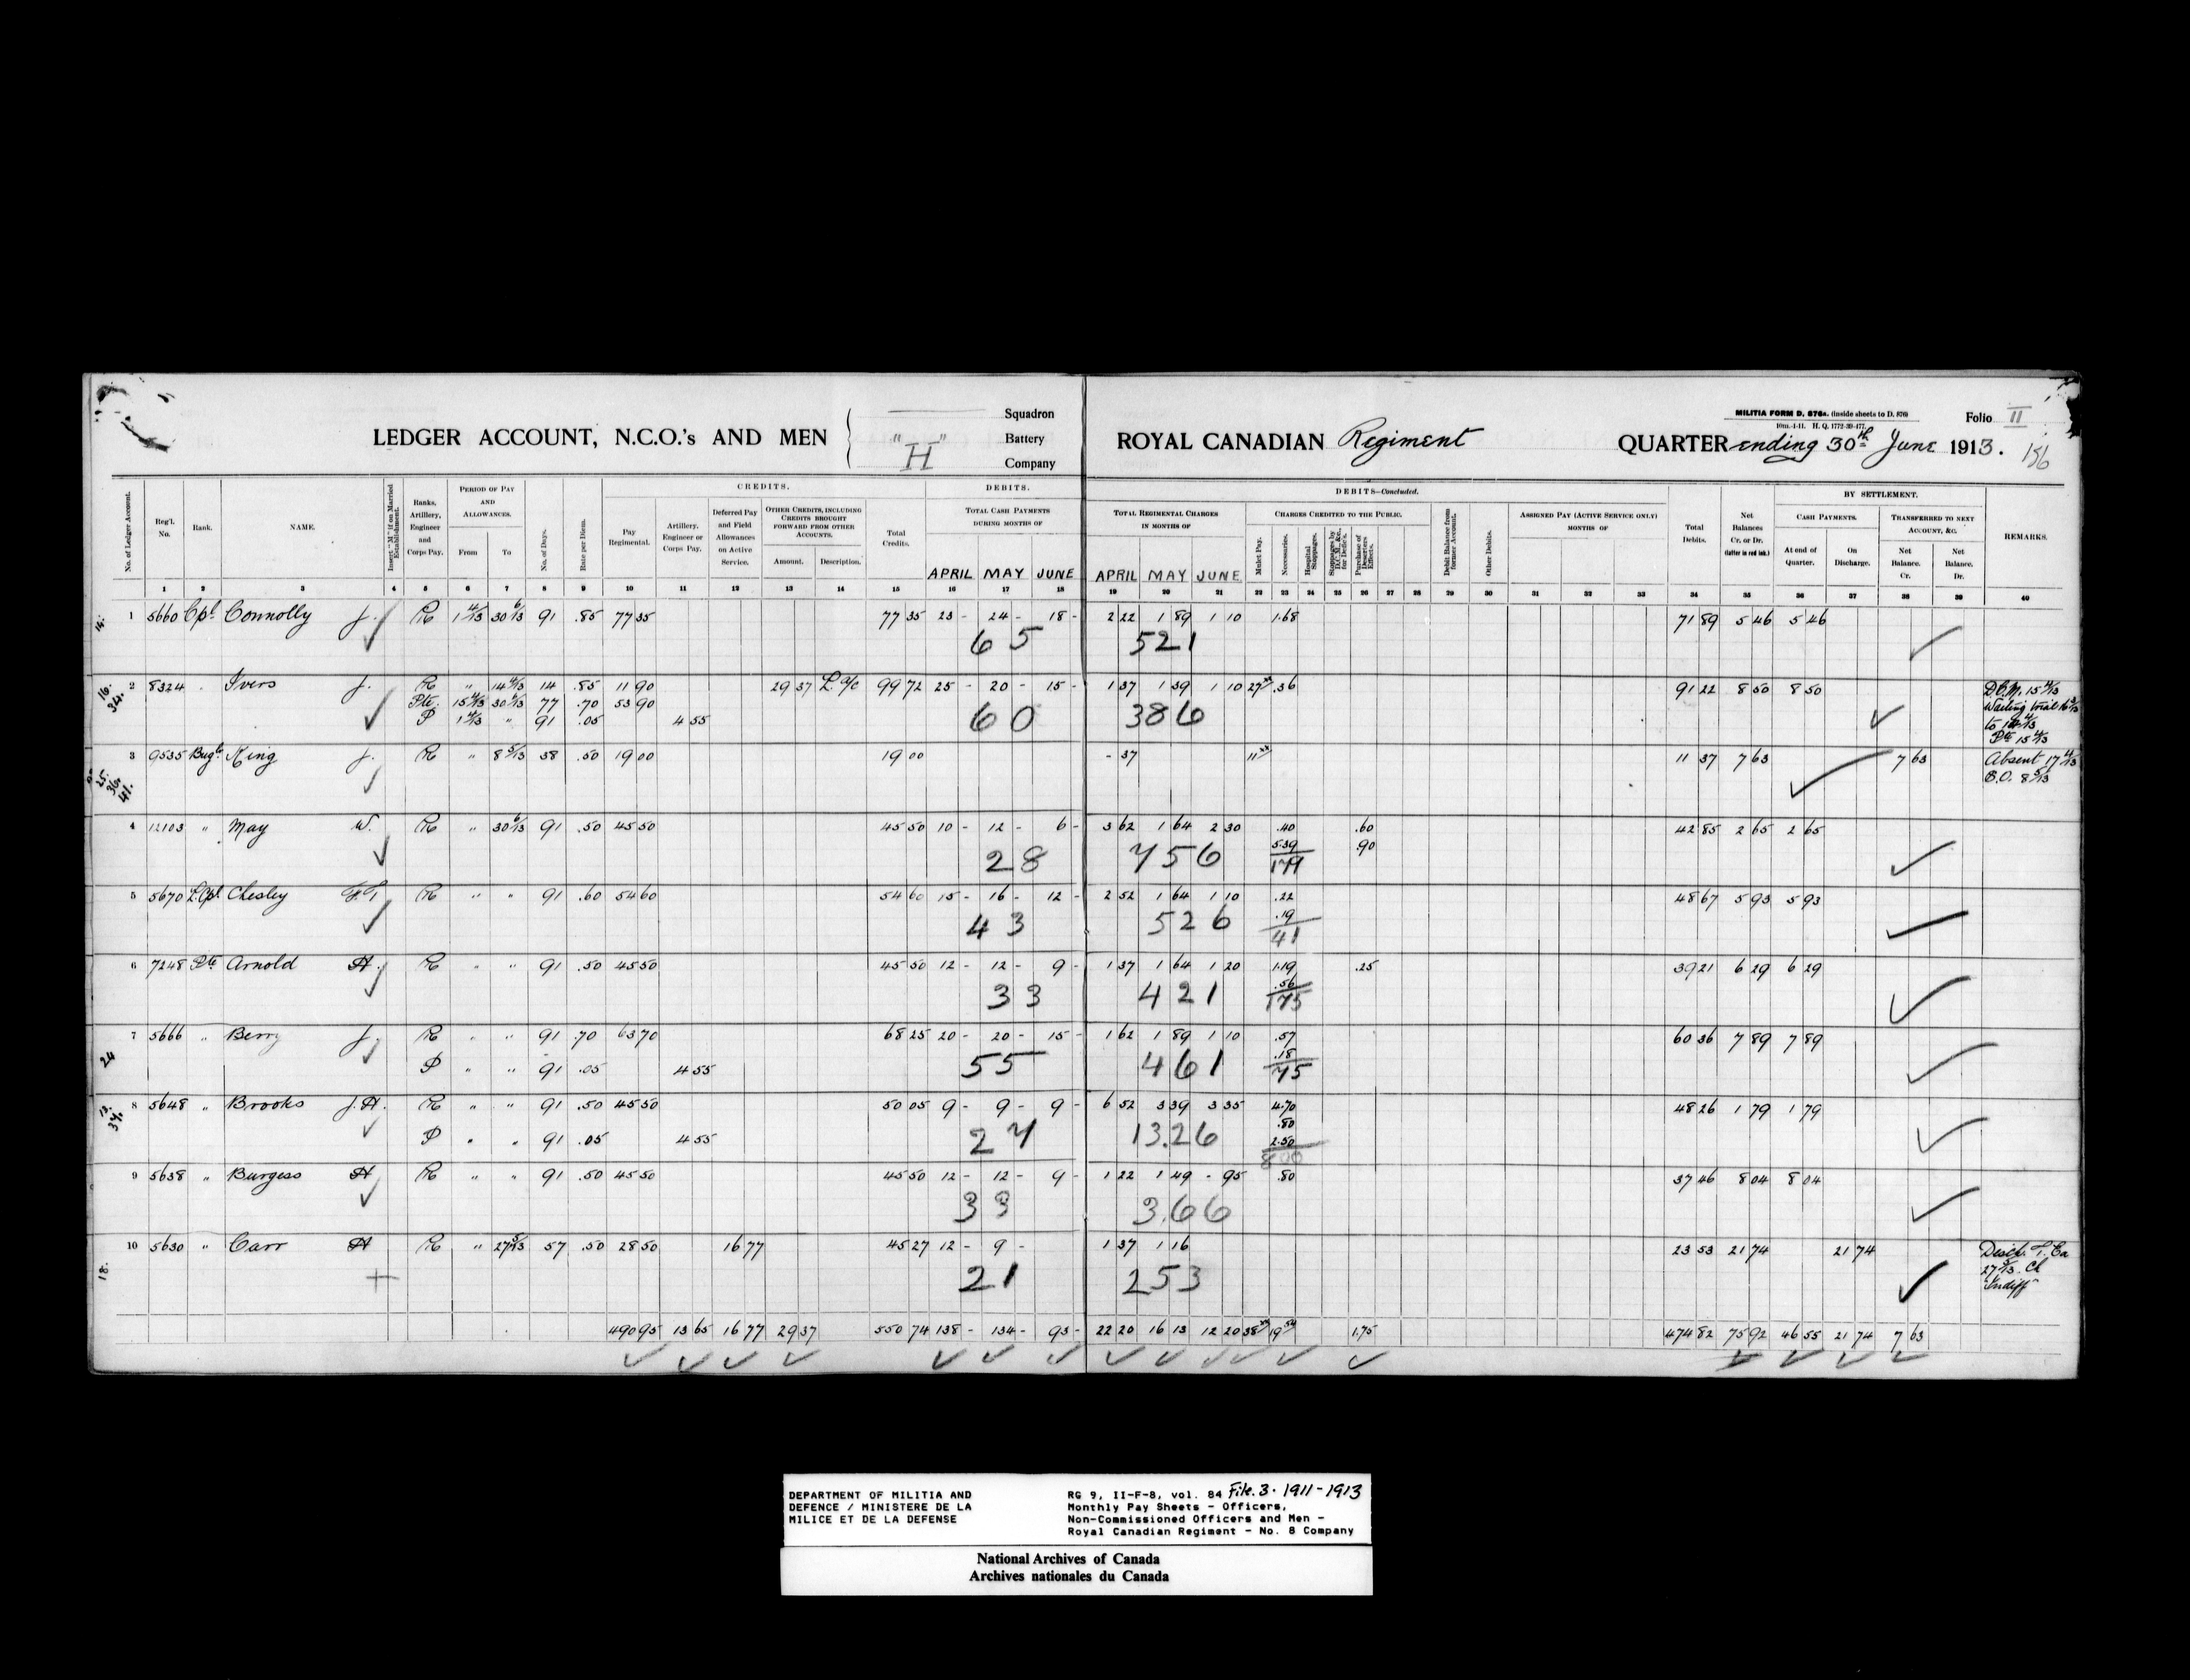 LEDGER ACCOUNT, N.C.O.'s AND MEN
Squadron
"H" Battery
Company
ROYAL CANADIAN Regiment
MILITIA FORM D. 876a. (inside sheets to D. 876)
10m.-1-11. H. Q. 1772-39-477.
Folio II
QUARTER ending 30th June 1913.
156
CREDITS. DEBITS. DEBITS—Concluded. BY SETTLEMENT.
No. of Ledger Account.
Reg'l. No.
Rank.
NAME.
Insert "M" if on Married Establishment.
Ranks, Artillery, Engineer and Corps Pay.
PERIOD OF PAY AND ALLOWANCES.
From To
No. of Days.
Rate per Diem.
Pay Regimental.
Artillery, Engineer or Corps Pay.
Deferred Pay and Field Allowances on Active Service.
OTHER CREDITS, INCLUDING CREDITS BROUGHT FORWARD FROM OTHER ACCOUNTS.
Amount. Description.
Total Credits.
TOTAL CASH PAYMENTS DURING MONTHS OF
APRIL MAY JUNE
TOTAL REGIMENTAL CHARGES IN MONTHS OF
APRIL MAY JUNE
CHARGES CREDITED TO THE PUBLIC.
Mulct Pay.
Necessaries.
Hospital Stoppages.
Purchase of Deserters Effects.
Debit Balance from former Account.
Other Debits.
ASSIGNED PAY (ACTIVE SERVICE ONLY) MONTHS OF
Total Debits.
Net Balances Cr. or Dr. (latter in red ink.)
CASH PAYMENTS.
At end of Quarter. On Discharge.
TRANSFERRED TO NEXT ACCOUNT, &C.
Net Balance. Cr. Net Balance. Dr.
REMARKS.
1 2 3 4 5 6 7 8 9 10 11 12 13 14 15 16 17 18 19 20 21 22 23 24 25 26 27 28 29 30 31 32 33 34 35 36 37 38 39 40
14. 1 5660 Cpl Connolly J. R 1 4/13 30 6/13 91 .85 77 35 77 35 23 - 24 - 18 - 2 22 1 89 1 10 1.68 71 89 5 46 5 46
65 521
16. 34. 2 8324 . Ivers J. R " 14 4/13 14 .85 11 90 29 37 L. a/c 99 72 25 - 20 - 15 - 1 37 1 39 1 10 27 .36 91 22 8 50 8 50 D.C.M. 15 4/13
Pte 15 4/13 30 6/13 77 .70 53 90 Waiting trial
P 1 4/13 " 91 .05 4 55 60 386 to 14 4/13
Pte 15 4/13
36. 41. 3 9535 Bugl King J. R " 8 5/13 38 .50 19 00 19 00 - 37 11 11 37 7 63 7 63 Absent 17 4/13
S.O. 8 5/13
4 12103 " May W. R " 30 6/13 91 .50 45 50 45 50 10 - 12 - 6 - 3 62 1 64 2 30 .40 .60 42 85 2 65 2 65
5.39 .90
28 756
5 5670 L.Cpl. Chesley R " " 91 .60 54 60 54 60 15 - 16 - 12 - 2 52 1 64 1 10 .22 48 67 5 93 5 93
.19
43 526 41
6 7248 Pte Arnold H. R " " 91 .50 45 50 45 50 12 - 12 - 9 - 1 37 1 64 1 20 1.19 .25 39 21 6 29 6 29
.56
33 421 175
24 7 5666 " Berry J. R " " 91 .70 63 70 68 25 20 - 20 - 15 - 1 62 1 89 1 10 .57 60 36 7 89 7 89
.18
P " " 91 .05 4 55 55 461 75
13. 34. 8 5648 " Brooks J.H. R " " 91 .50 45 50 50 05 9 - 9 - 9 - 6 52 3 39 3 35 4.70 48 26 1 79 1 79
.80
P " " 91 .05 4 55 27 13.26 2.50
800
9 5638 " Burgess H R " " 91 .50 45 50 45 50 12 - 12 - 9 - 1 22 1 49 - 95 .80 37 46 8 04 8 04
33 3.66
18. 10 5630 " Carr H R " 27 5/13 57 .50 28 50 16 77 45 27 12 - 9 - 1 37 1 16 23 53 21 74 21 74
27 5/13. Cl
21 253 "Indiff"
490 95 13 65 16 77 29 37 550 74 138 - 134 - 93 - 22 20 16 13 12 20 38 19 54 1.75 474 82 75 92 46 55 21 74 7 63
DEPARTMENT OF MILITIA AND
DEFENCE / MINISTERE DE LA
MILICE ET DE LA DEFENSE
RG 9, II-F-8, vol. 84 File. 3. 1911-1913
Monthly Pay Sheets - Officers,
Non-Commissioned Officers and Men -
Royal Canadian Regiment - No. 8 Company
National Archives of Canada
Archives nationales du Canada